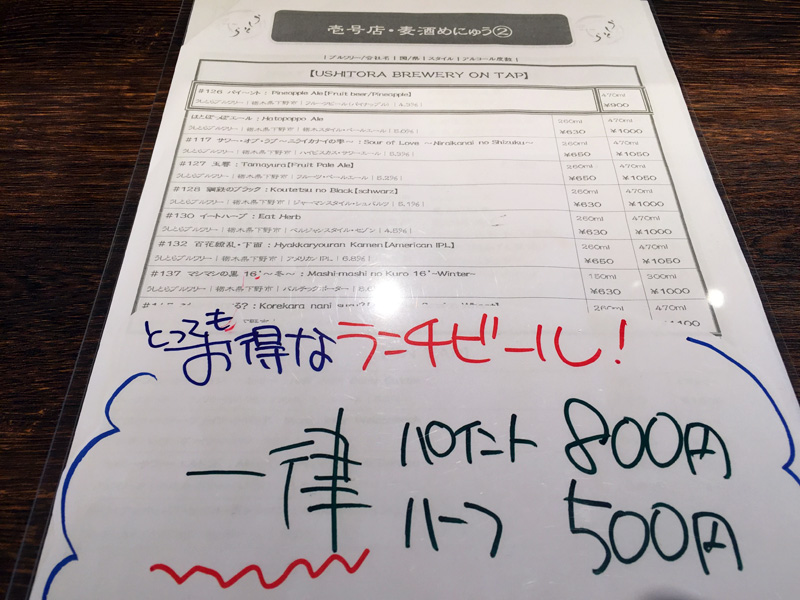 壱号店・麦酒めにゅう②
|ブルワリー/会社名|国/県|スタイル|アルコール度数|
【USHITORA BREWERY ON TAP】
#126 パイーント : Pineapple Ale【Fruit beer/Pineapple】 470ml
うしとらブルワリー|栃木県下野市|フルーツビール(パイナップル)|4.3%| ¥900
はたぽっぽエール : Hatapoppo Ale 260ml 470ml
うしとらブルワリー|栃木県下野市|栃木スタイル・ペールエール|5.0%| ¥630 ¥1000
#117 サワー・オブ・ラブ ~ニライカナイの雫~ : Sour of Love ~Nirakanai no Shizuku~ 260ml 470ml
うしとらブルワリー|栃木県下野市|ハイビスカス・サワーエール|5.2%| ¥650 ¥1050
#127 玉響 : Tamayura【Fruit Pale Ale】 260ml 470ml
うしとらブルワリー|栃木県下野市|フルーツ・ペールエール|5.2%| ¥650 ¥1050
#128 鋼鉄のブラック : Koutetsu no Black【schwarz】 260ml 470ml
うしとらブルワリー|栃木県下野市|ジャーマンスタイル・シュバルツ|5.1%| ¥630 ¥1000
#130 イートハーブ : Eat Herb 260ml 470ml
うしとらブルワリー|栃木県下野市|ベルジャンスタイル・セゾン|4.5%| ¥630 ¥1000
#132 百花繚乱・下面 : Hyakkaryouran Kamen【American IPL】 260ml 470ml
うしとらブルワリー|栃木県下野市|アメリカンIPL|6.8%| ¥650 ¥1050
#137 マシマシの黒 16'~冬~ : Mashi-mashi no Kuro 16'~Winter~ 150ml 300ml
うしとらブルワリー|栃木県下野市|バルチックポーター| ¥630 ¥1000
る? : Korekara nani 260ml 470ml
とっても
お得なランチビール!
一律 パイント 800円
ハーフ 500円